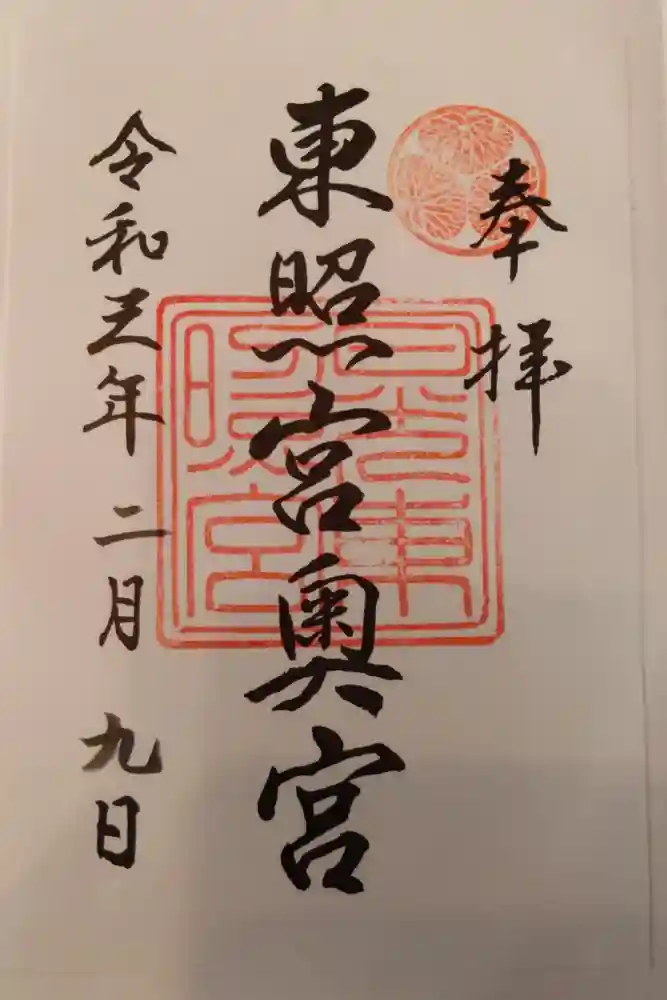 奉拝
東照宮奥宮
令和三年 二月 九日